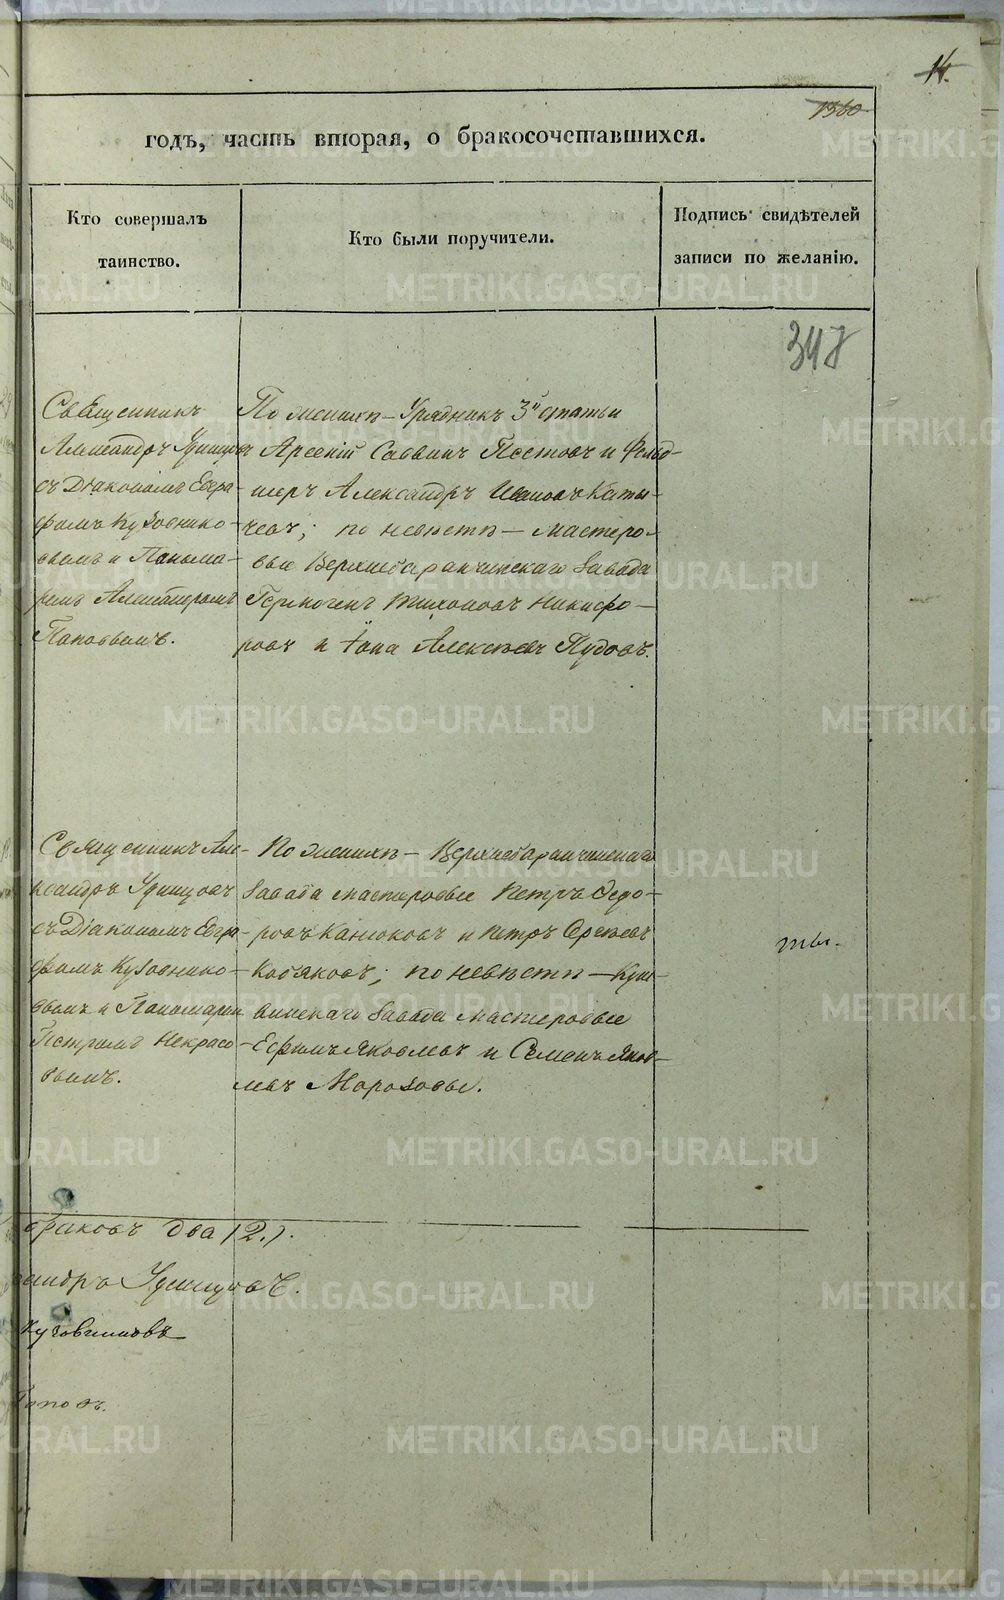 14.
1360
годъ, часть вторая, о бракосочетавшихся.
Кто совершалъ
таинство.
Кто были поручители.
Подпись свидѣтелей
записи по желанію.
348
Священникъ
Александръ Удинцовъ
съ Діакономъ Евгра-
фомъ Кузовнико-
вымъ и Понома-
ремъ Александромъ
Поповымъ.
По женихѣ – Урядникъ 3й статьи
Арсеній Саввинъ Пестовъ и Фельд-
шеръ Александръ Ивановъ Каты-
чевъ; по невѣстѣ – мастеро-
вые Верхнебаранчинскаго завода
Гермогенъ Тихоновъ Никифо-
ровъ и Іона Алексѣевъ Пудовъ.
Священникъ Але-
ксандръ Удинцовъ
съ Діакономъ Евгра-
фомъ Кузовнико-
вымъ и Пономаремъ
Петромъ Некрасо-
вымъ.
По женихѣ – Верхнебаранчинскаго
завода мастеровые Петръ Ѳедо-
ровъ Канюковъ и Петръ Сергѣевъ
Кобяковъ; по невѣстѣ – Куш-
винскаго завода мастеровые
Ефимъ Яковлевъ и Семенъ Яков-
левъ Морозовы.
браковъ два (2.).
сандръ Удинцовъ.
Кузовниковъ
Поповъ.
METRIKI.GASO-URAL.RU